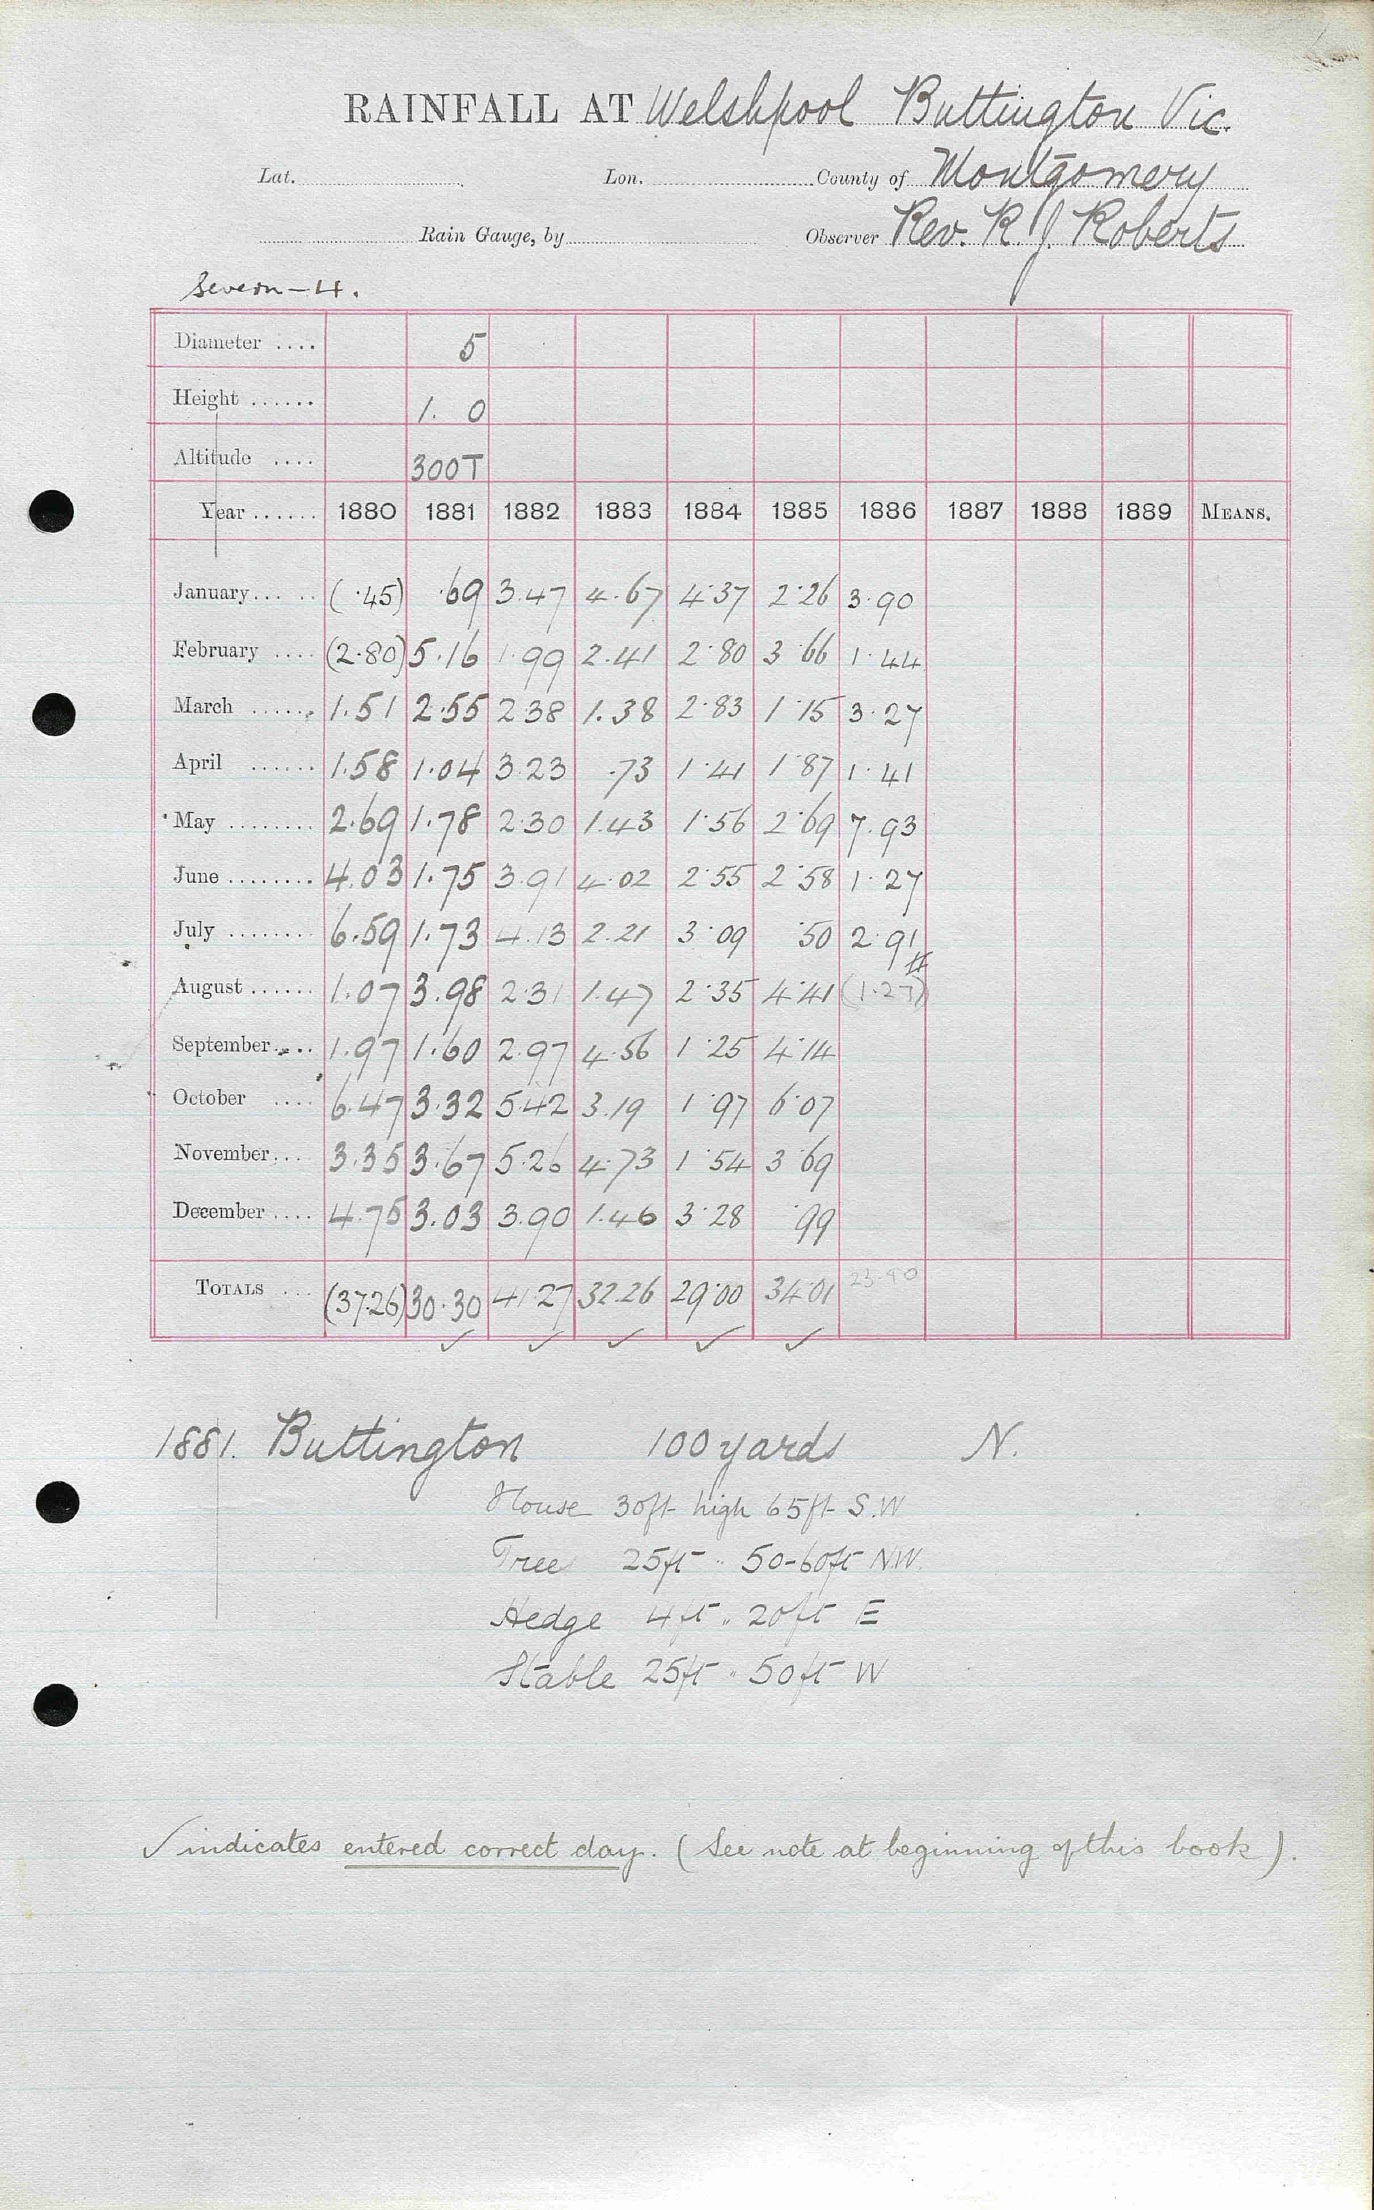 RAINFALL AT Welshpool Buttington Vic.
Lat. Lon. County of Montgomery
Rain Gauge, by Observer Rev. R. J. Roberts
Severn-4.
Diameter .... 5
Height ...... 1. 0
Altitude .... 300T
Year ...... 1880 1881 1882 1883 1884 1885 1886 1887 1888 1889 MEANS.
January... .. (.45) .69 3.47 4.67 4.37 2.26 3.90
February .... (2.80) 5.16 1.99 2.41 2.80 3.66 1.44
March ...... 1.51 2.55 2.38 1.38 2.83 1.15 3.27
April ...... 1.58 1.04 3.23 .73 1.41 1.87 1.41
May ........ 2.69 1.78 2.30 1.43 1.56 2.69 7.93
June ........ 4.03 1.75 3.91 4.02 2.55 2.58 1.27
July ........ 6.59 1.73 4.13 2.21 3.09 .50 2.91
August ...... 1.07 3.98 2.31 1.47 2.35 4.41 (1.27)
September.... 1.97 1.60 2.97 4.56 1.25 4.14
October .... 6.47 3.32 5.42 3.19 1.97 6.07
November.... 3.35 3.67 5.26 4.73 1.54 3.69
December .... 4.75 3.03 3.90 1.46 3.28 .99
TOTALS ... (37.26) 30.30 41.27 32.26 29.00 34.01
✓ ✓ ✓ ✓ ✓
1881. Buttington 100 yards N.
House 30ft high 65ft S.W
Tree 25ft " 50-60ft N.W.
Hedge 4ft " 20ft E
Stable 25ft " 50ft W
✓ indicates entered correct day. (See note at beginning of this book).